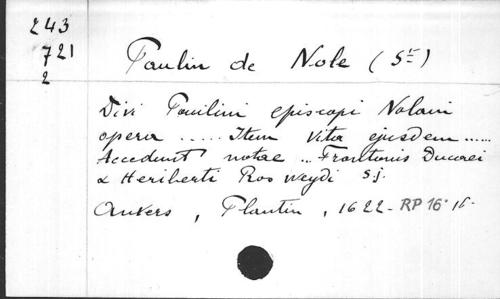 243
721
2
Paulin de Nole (St)
Divi Paulini episcopi Nolani
opera ..... Item Vita ejusdem .....
Accedunt notae ... Frontonis Ducaei
& Heriberti Ros weydi S.j.
Anvers, Plantin, 1622 - RP 16° 16-